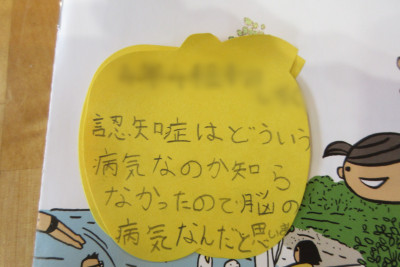 認知症はどういう
病気なのか知ら
なかったので脳の
病気なんだと思い